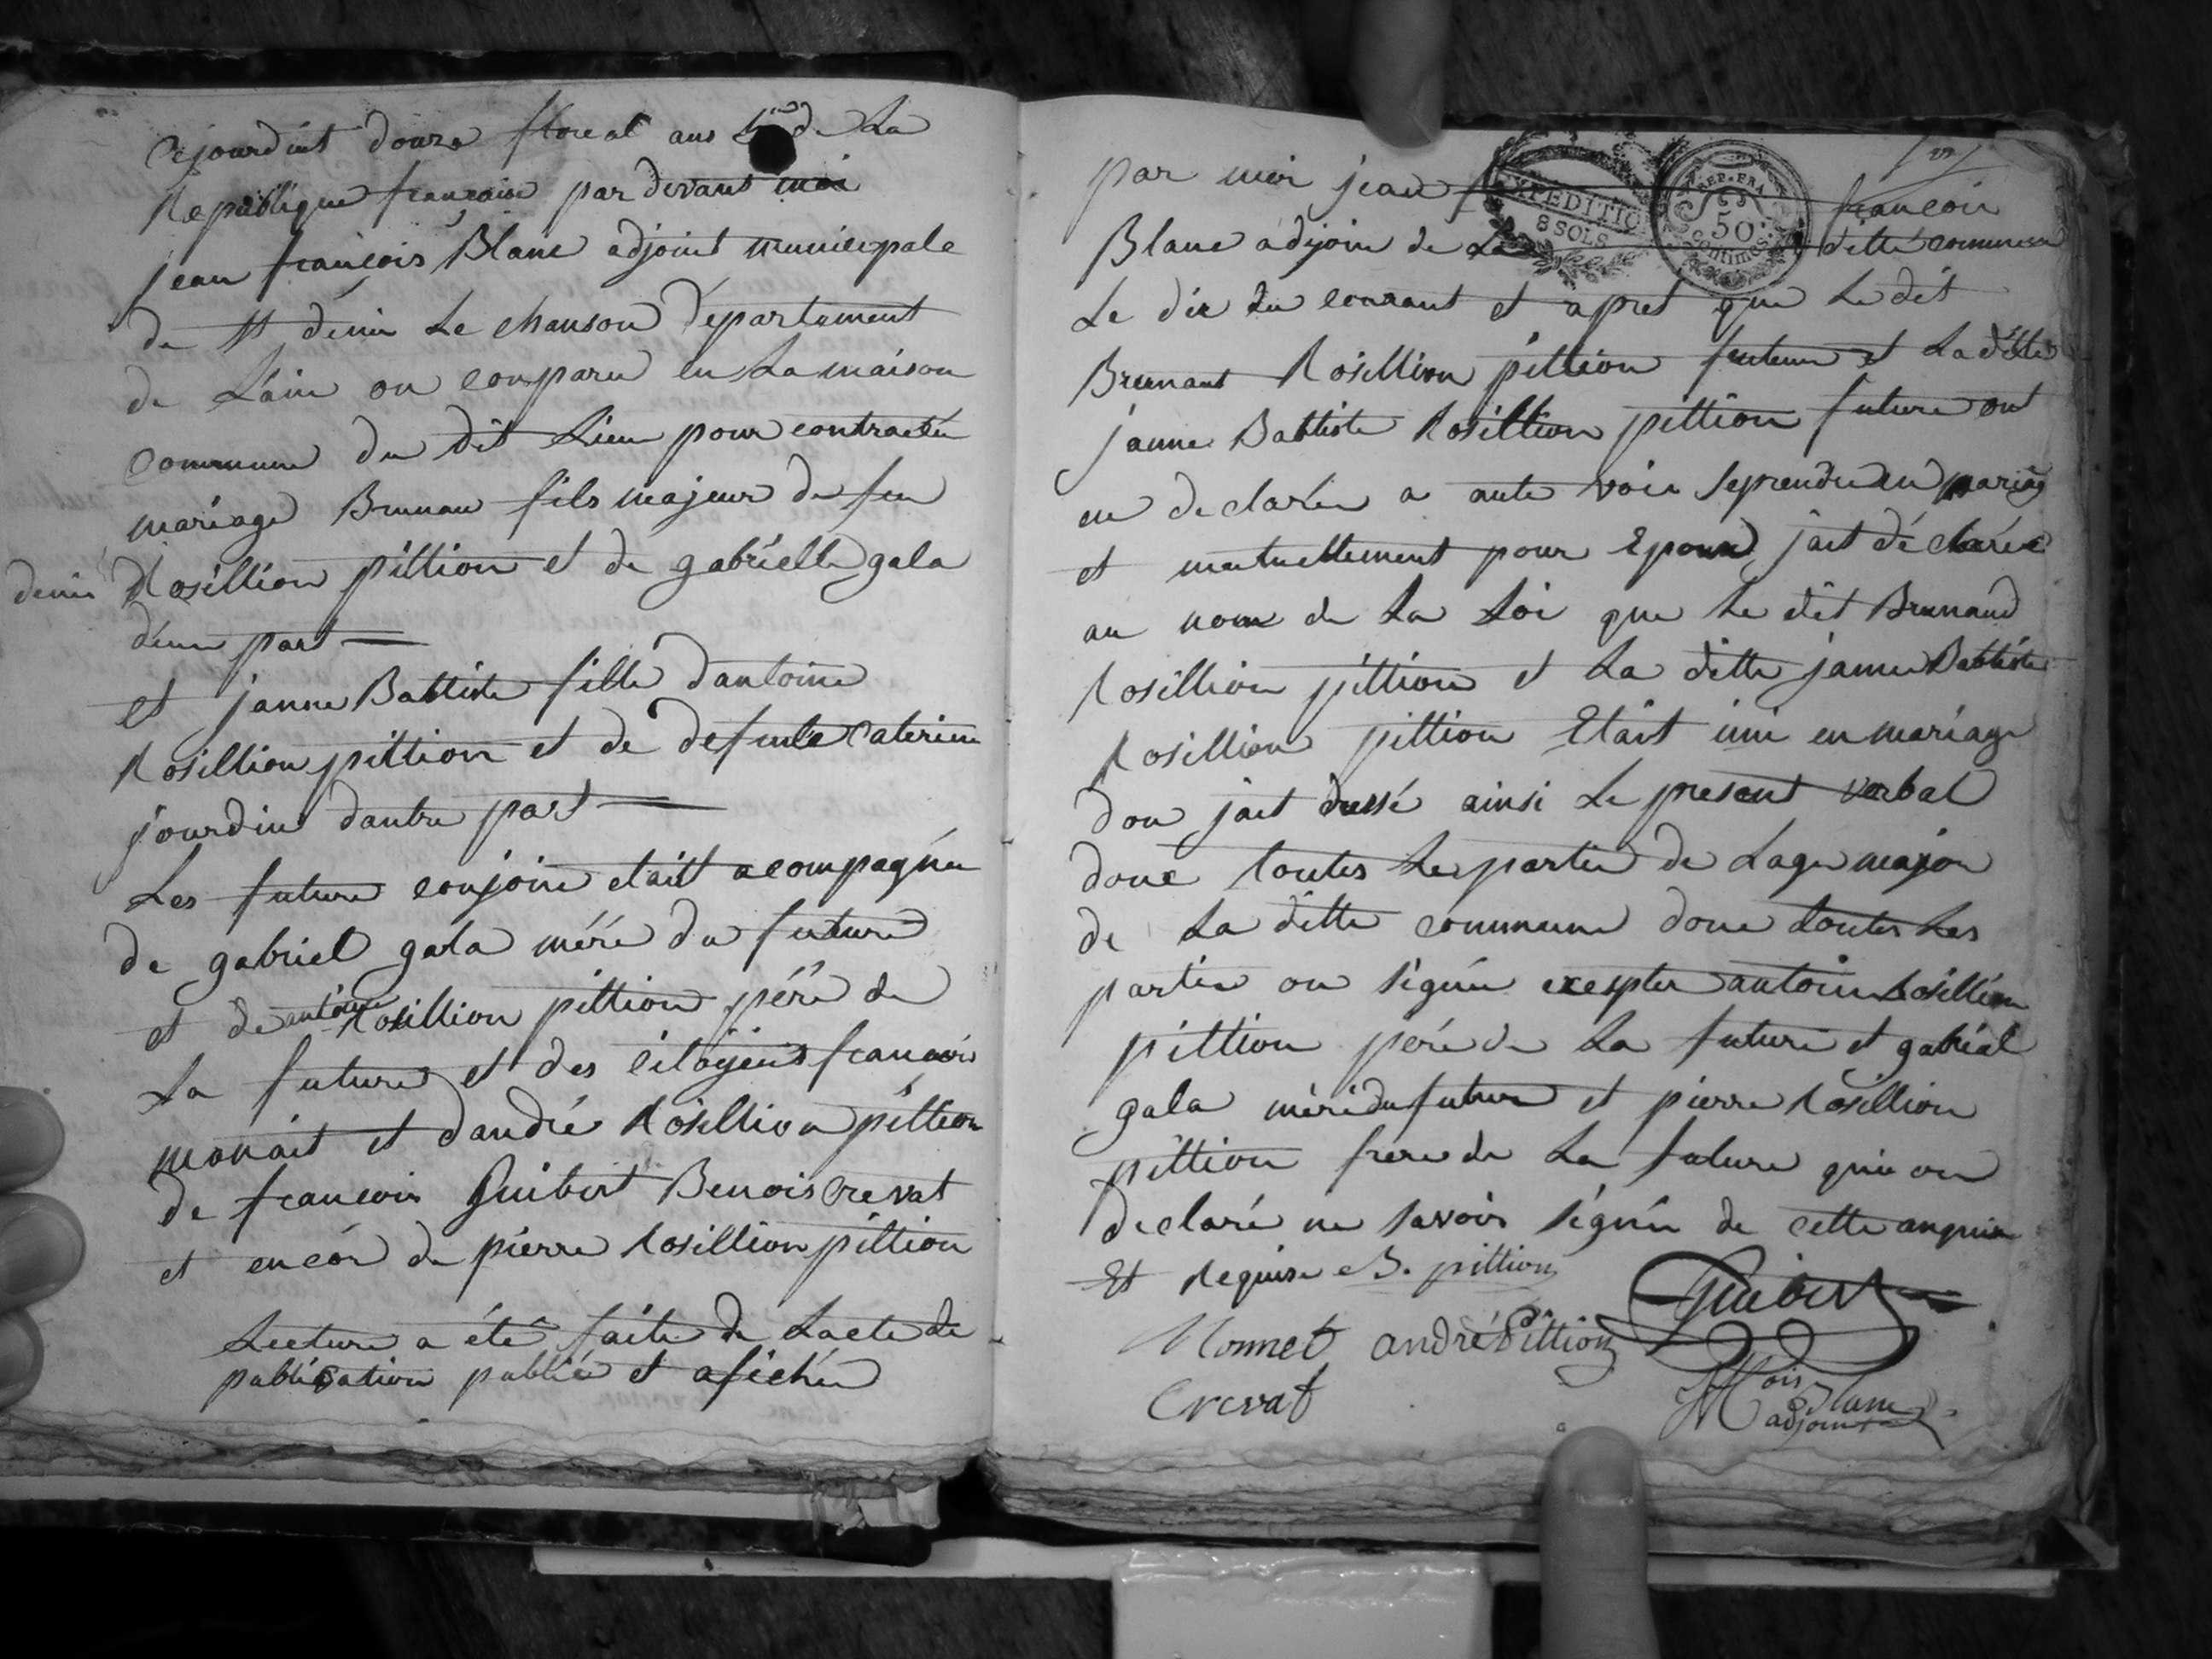 Cejourduit douze floreal ans de La
Republique francaise par devant moi
jean francois Blanc adjoint municipale
de st dénis Le chanson département
de L'ain on comparu en La maison
commune du dit Lieu pour contractér
mariage Brunau fils majeur de feu
denis Rosillion pittion et de gabrielle gala
d'eune part
et janne Battiste fille d'antoine
Rosillion pittion et de defunte Caterine
jourdin d'autre part
Les future conjoin etait acompagnée
de gabriel gala mére du future
et de antoine Rosillion pittion pére de
La future et des citoyens francois
monait et d'andré Rosillion pittion
de francois Guibert Benois Crevat
et encor de pierre Rosillion pittion
Lecture a été faite de Lacte de
publication publiée et afichée
par moi jean francois
EXPEDITION
8 SOLS
REP. FRA
50
centimes
Blanc adjoin de La ditte commune
Le dix du courant et apret que Le dit
Brunant Rosillion pittion future et La ditte
janne Battiste Rosillion pittion future ont
eu declarée a aute voix se prendre en mariag
et mutuellement pour Epoux jait déclarée
au nom de La Loi que Le dit Brunaud
Rosillion pittion et La ditte janne Battiste
Rosillion pittion Etait uni en mariage
don jait dressé ainsi Le present verbal
donc toutes Les partie de Lage major
de La ditte commune donc toutes Les
partie on signée excepter antoine Rosillion
pittion pére de La future et gabrial
gala mére du future et pierre Rosillion
pittion frere de La future qui on
declaré ne savoir signée de cette anquise
Et Requise B. pittion
Guibert
Monnet andré Pittion
Crevat
fois Blanc
adjoint